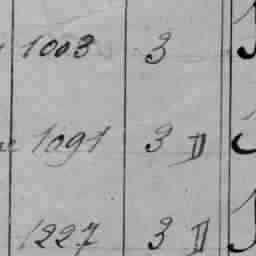 1003 3
1091 3 II
1227 3 II